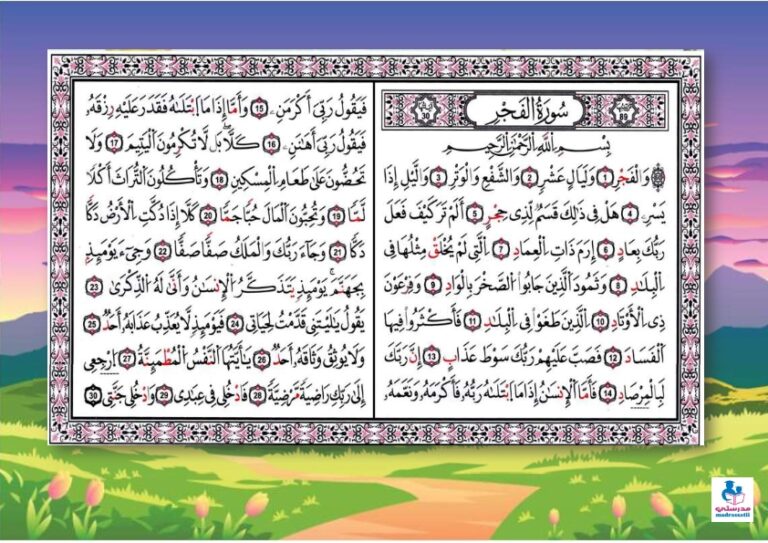 سُورَةُ الفَجْرِ
89
30
بِسْمِ اللَّهِ الرَّحْمَٰنِ الرَّحِيمِ
وَالْفَجْرِ 1 وَلَيَالٍ عَشْرٍ 2 وَالشَّفْعِ وَالْوَتْرِ 3 وَالَّيْلِ إِذَا
يَسْرِ 4 هَلْ فِي ذَٰلِكَ قَسَمٌ لِّذِي حِجْرٍ 5 أَلَمْ تَرَ كَيْفَ فَعَلَ
رَبُّكَ بِعَادٍ 6 إِرَمَ ذَاتِ الْعِمَادِ 7 الَّتِي لَمْ يُخْلَقْ مِثْلُهَا فِي
الْبِلَٰدِ 8 وَثَمُودَ الَّذِينَ جَابُوا الصَّخْرَ بِالْوَادِ 9 وَفِرْعَوْنَ
ذِي الْأَوْتَادِ 10 الَّذِينَ طَغَوْا فِي الْبِلَٰدِ 11 فَأَكْثَرُوا فِيهَا
الْفَسَادَ 12 فَصَبَّ عَلَيْهِمْ رَبُّكَ سَوْطَ عَذَابٍ 13 إِنَّ رَبَّكَ
لَبِالْمِرْصَادِ 14 فَأَمَّا الْإِنسَٰنُ إِذَا مَا ابْتَلَىٰهُ رَبُّهُ فَأَكْرَمَهُ وَنَعَّمَهُ
فَيَقُولُ رَبِّي أَكْرَمَنِ 15 وَأَمَّا إِذَا مَا ابْتَلَىٰهُ فَقَدَرَ عَلَيْهِ رِزْقَهُ
فَيَقُولُ رَبِّي أَهَٰنَنِ 16 كَلَّا بَل لَّا تُكْرِمُونَ الْيَتِيمَ 17 وَلَا
تَحُضُّونَ عَلَىٰ طَعَامِ الْمِسْكِينِ 18 وَتَأْكُلُونَ التُّرَاثَ أَكْلًا
لَّمًّا 19 وَتُحِبُّونَ الْمَالَ حُبًّا جَمًّا 20 كَلَّا إِذَا دُكَّتِ الْأَرْضُ دَكًّا
دَكًّا 21 وَجَاءَ رَبُّكَ وَالْمَلَكُ صَفًّا صَفًّا 22 وَجِيءَ يَوْمَئِذٍ
بِجَهَنَّمَ يَوْمَئِذٍ يَتَذَكَّرُ الْإِنسَٰنُ وَأَنَّىٰ لَهُ الذِّكْرَىٰ 23
يَقُولُ يَٰلَيْتَنِي قَدَّمْتُ لِحَيَاتِي 24 فَيَوْمَئِذٍ لَّا يُعَذِّبُ عَذَابَهُ أَحَدٌ 25
وَلَا يُوثِقُ وَثَاقَهُ أَحَدٌ 26 يَٰأَيَّتُهَا النَّفْسُ الْمُطْمَئِنَّةُ 27 ارْجِعِي
إِلَىٰ رَبِّكِ رَاضِيَةً مَّرْضِيَّةً 28 فَادْخُلِي فِي عِبَٰدِي 29 وَادْخُلِي جَنَّتِي 30
مدرستي
madrassatii